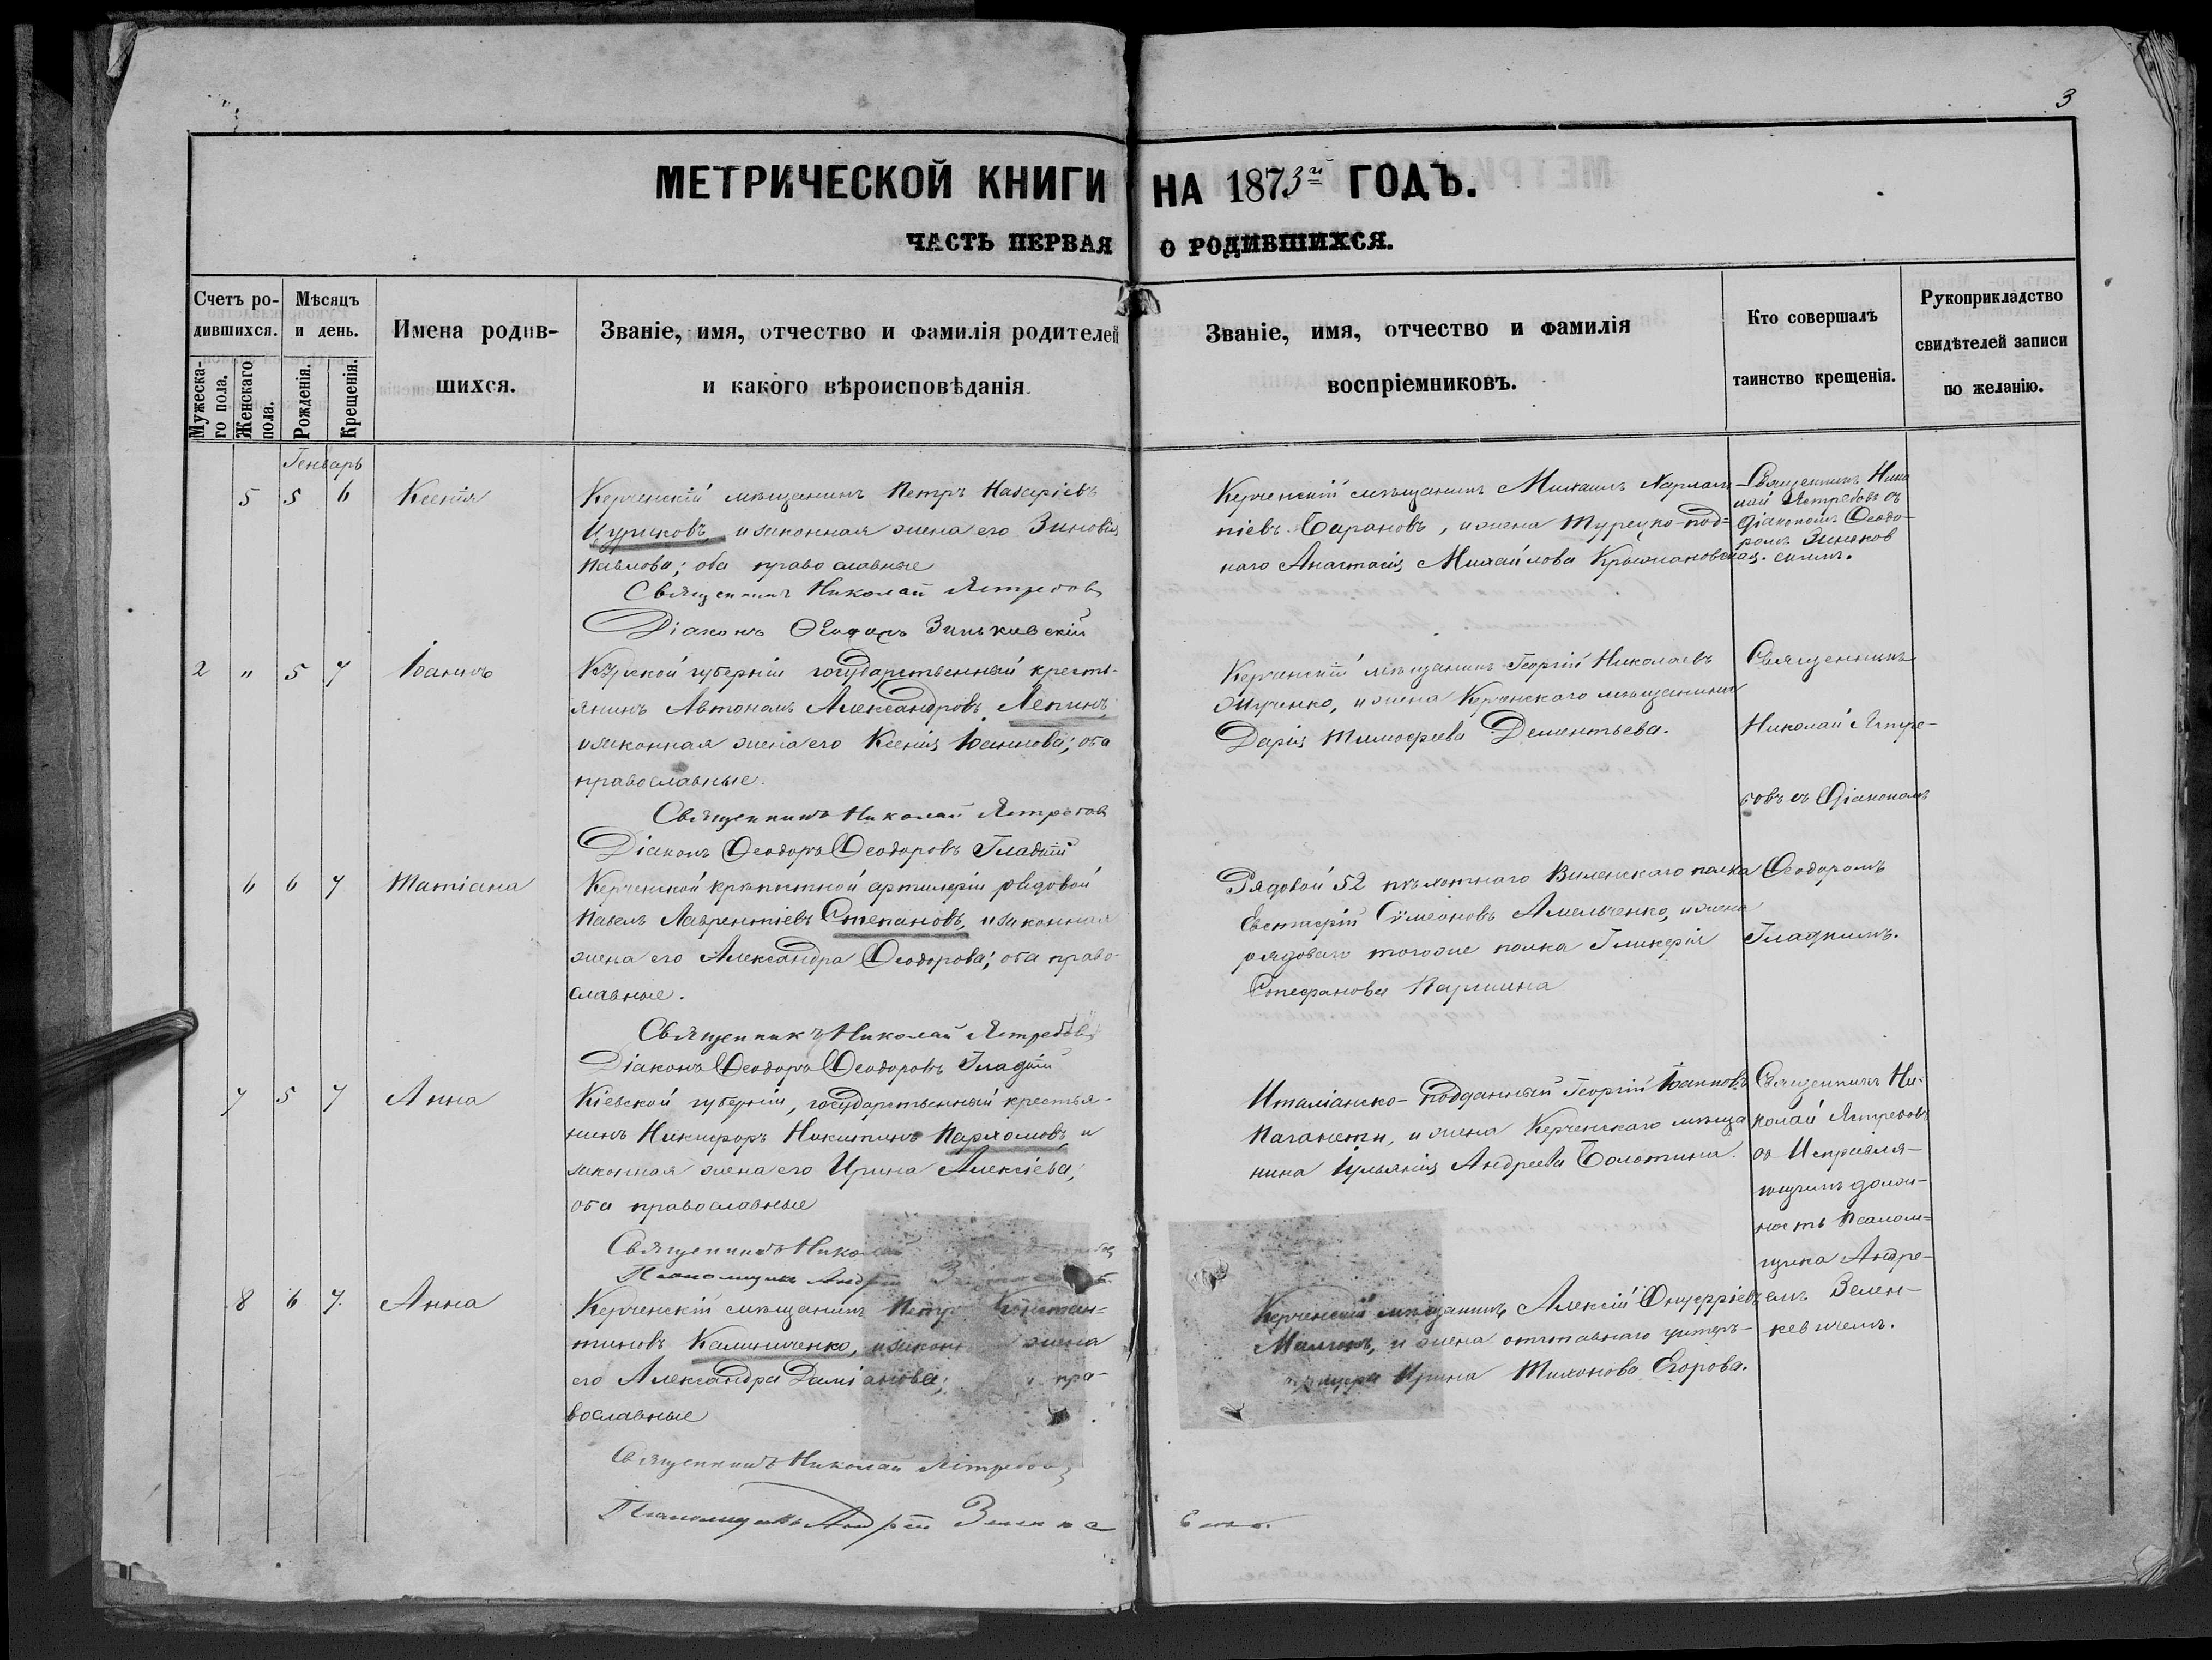 3
МЕТРИЧЕСКОЙ КНИГИ НА 1873й ГОДЪ.
ЧАСТЬ ПЕРВАЯ О РОДИВШИХСЯ.
Счетъ ро-
дившихся.
Мужеска-
го пола.
Женскаго
пола.
Мѣсяцъ
и день.
Рожденія.
Крещенія.
Имена родив-
шихся.
Званіе, имя, отчество и фамилія родителей
и какого вѣроисповѣданія.
Званіе, имя, отчество и фамилія
воспріемниковъ.
Кто совершалъ
таинство крещенія.
Рукоприкладство
свидѣтелей записи
по желанію.
Генварь
5 5 6 Ксенія
Керченскій мѣщанинъ Петръ Назаріевъ
и законная жена его Зиновія
Павлова; оба православные
Священникъ Николай Ястребовъ
Діаконъ Ѳеодоръ Зиньковскій
Керченскій мѣщанинъ Михаилъ Харлам-
піевъ Барановъ, и жена Турецко-под-
наго Анастасія Михайлова Крыжановская.
Священникъ Нико
лай Ястребовъ съ
Діакономъ Ѳеодо-
ромъ Зиньков
скимъ.
2 " 5 7 Іоаннъ
Курской губерніи государственный кресть-
янинъ Автономъ Александровъ Лепинъ,
и законная жена его Ксенія Іоаннова; оба
православные.
Священникъ Николай Ястребовъ
Діаконъ Ѳеодоръ Ѳеодоровъ Гладкій
Керченскій мѣщанинъ Георгій Николаевъ
и жена Керченскаго мѣщанина
Дарія Тимоѳеева Дементьева.
Священникъ
Николай Ястре-
бовъ съ Діакономъ
Ѳеодоромъ
Гладкимъ.
6 6 7 Татіана
Керченской крѣпостной артилеріи рядовой
Павелъ Лаврентіевъ Степановъ, и законная
жена его Александра Ѳеодорова; оба право-
славные.
Священникъ Николай Ястребовъ
Діаконъ Ѳеодоръ Ѳеодоровъ Гладкій
Рядовой 52 пѣхотнаго Виленскаго полка
Евстафій Сѵмеоновъ Амельченко, и жена
рядоваго тогоже полка Гликерія
Стефанова Паршина
7 5 7 Анна
Кіевской губерніи, государственный крестья-
нинъ Никифоръ Никитинъ Пархомовъ, и
законная жена его Ирина Алексіева;
оба православные
Священникъ Николай
Псаломщикъ Андрей
Италіанско-подданный Георгій Іоанновъ
Паганети, и жена Керченскаго мѣща
нина Іуліанія Андреева Болотина.
Священникъ Ни-
колай Ястребовъ
съ Исправля-
ющимъ долж-
ность Псалом-
щика Андре-
емъ Зелен-
кевичемъ.
8 6 7. Анна
Керченскій мѣщанинъ Петръ Констан-
тиновъ Калиниченко, и законная жена
его Александра Даміанова; пра-
вославные
Священникъ Николай Ястребовъ
Псаломщикъ Андрей
Керченскій мѣщанинъ Алексій Онуфріевъ
и жена отставнаго унтеръ-
Ирина Тихонова Егорова.